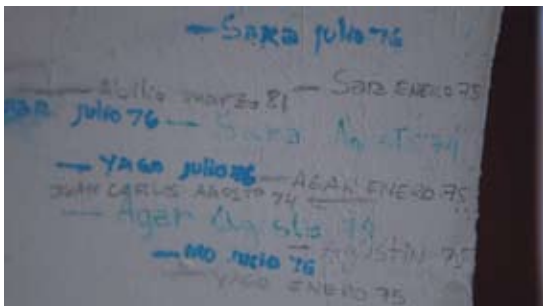 — SARA julio 76
marzo 81 — Sara ENERO 75
julio 76 — Sara Agosto 74
— YAGO julio 76 — AGAR ENERO 75
JUAN CARLOS AGOSTO 74
— Agar Agosto 74
— julio 76
— YAGO ENERO 75